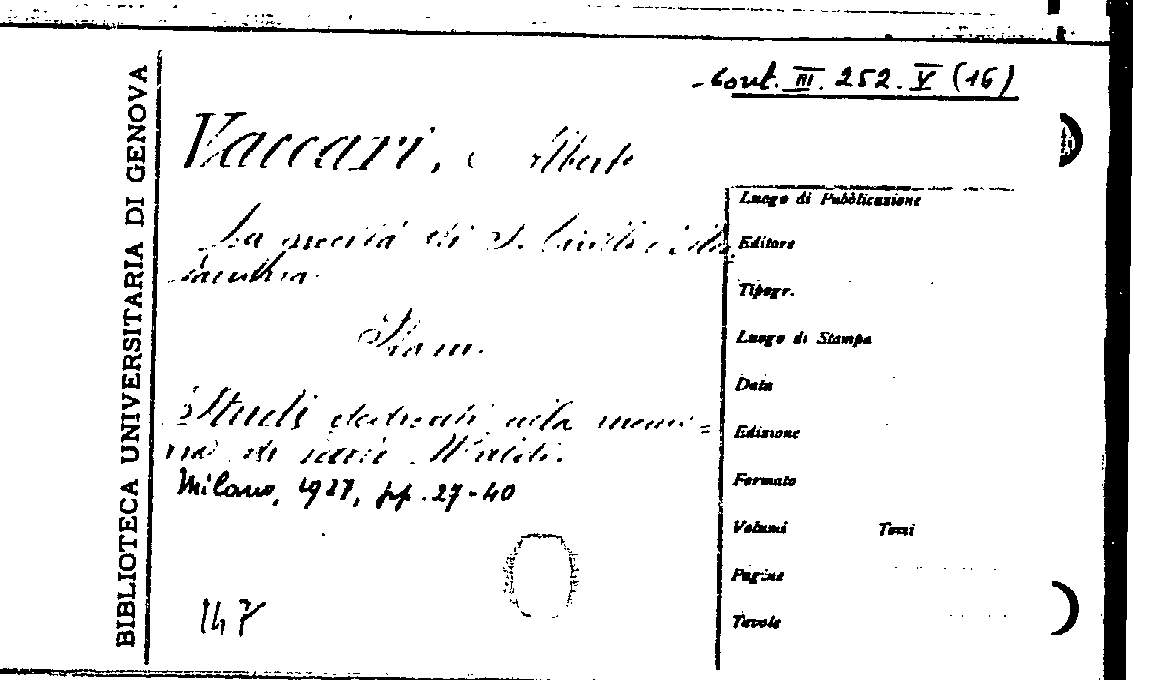 Cont. III. 252. V (16)
BIBLIOTECA UNIVERSITARIA DI GENOVA
Vaccari, Alberto
La grecità di S.
Stam.
Studi dedicati alla memo=
ria di Ubaldi.
Milano, 1937, pp. 27-40
147
Luogo di Pubblicazione
Editore
Tipogr.
Luogo di Stampa
Data
Edizione
Formato
Volumi Tomi
Pagine
Tavole